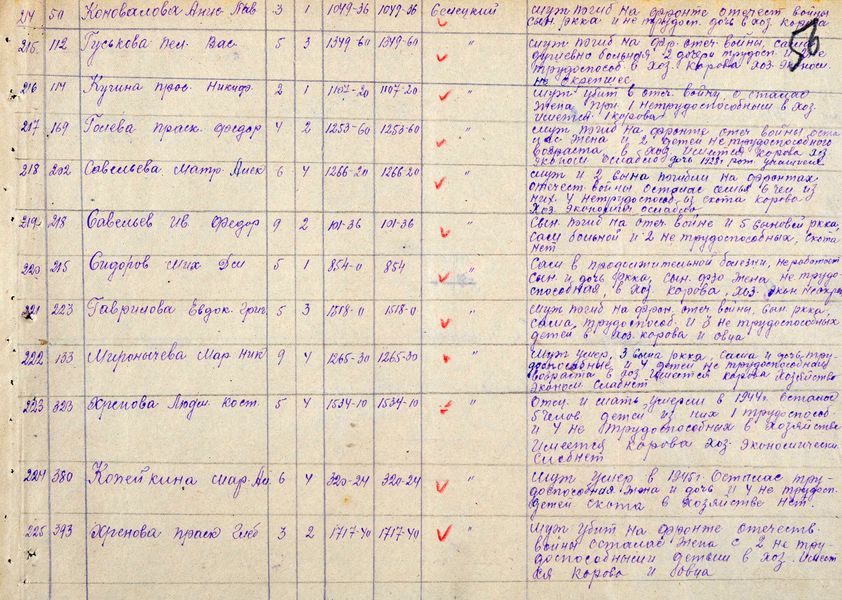 56
214 50 Коновалова Анис. Пав 3 1 1049-36 1049-36 Сенецкий муж погиб на фронте отечест войны
сын ркка и не трудосп. дочь в хоз корова
215 112 Гуськова Пел. Вас. 5 3 1349-60 1349-60 " муж погиб на фр. отеч войны, сама
душевно больная 2 дочери трудосп и 2 не
трудоспособ в хоз. корова хоз. эконом.
не окрепшее
216 114 Кучина прос. Никиф. 2 1 1107-20 1107-20 " муж убит в отеч. войну, осталас
жена при 1 нетрудоспособным в хоз.
имеется 1 корова
217 169 Гоева праск. федор 4 2 1253-60 1253-60 " муж погиб на фронте отеч войны оста
лас жена и 2 детей не трудоспособного
возраста в хоз имеется корова хоз
эконом ослабло дочь 1929 рож учащаяся
218 202 Савельева. Матр. 6 4 1266-20 1266-20 " муж и 2 сына погибли на фронтах
отечест войны осталас семья 6 чел из
них 4 нетрудоспособ, из скота корова
хоз. экономич ослабло
219 218 Савельев Ив. федор 9 2 101-36 101-36 " Сын погиб на отеч войне и 5 сыновей ркка,
сам больной и 2 не трудоспособных, скота
нет
220 215 Сидоров мих 5 1 854-0 854 " Сам в продолжительной болезни, не работает
сын и дочь ркка, сын. фзо жена не трудо-
способная, в хоз корова, хоз. экон
221 223 Гаврилова Евдок. Григ. 5 3 1518-0 1518-0 " муж погиб на фрон. отеч войны, сын ркка,
сама, трудоспособ. и 3 не трудоспособных
детей в хоз. корова и овца
222 133 Миронычева Мар. Ник 9 4 1265-30 1265-30 " муж умер, 3 сына ркка, сама и дочь тру-
доспособные и 4 детей не трудоспособных
возраста в хоз имеется корова хозяйство
эконом слабнет
223 323 Хренова Людм. Кост. 5 4 1534-10 1534-10 " Отец и мать умерли в 1944г. осталос
5 челов детей из них 1 трудоспособ
и 4 не трудоспособных в хозяйстве
имеется корова хоз. экономически.
слабнет
224 380 Копейкина мар. 6 4 320-24 320-24 " муж умер в 1945г Осталас тру-
доспособная жена и дочь и 4 не трудосп.
детей скота в хозяйстве нет.
225 393 Хренова праск Глеб 3 2 1717-40 1717-40 " муж убит на фронте отечеств.
войны осталас жена с 2 не тру-
доспособными детьми в хоз. имеет
ся корова и овца